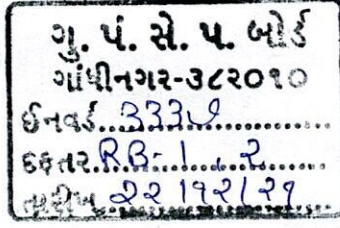 ગુ. પં. સે. પ. બોર્ડ
ગાંધીનગર-૩૮૨૦૧૦
ઈનવર્ડ..333૭
દફતર.RB-1,2
તારીખ ૨૨/૧૨/૨૧